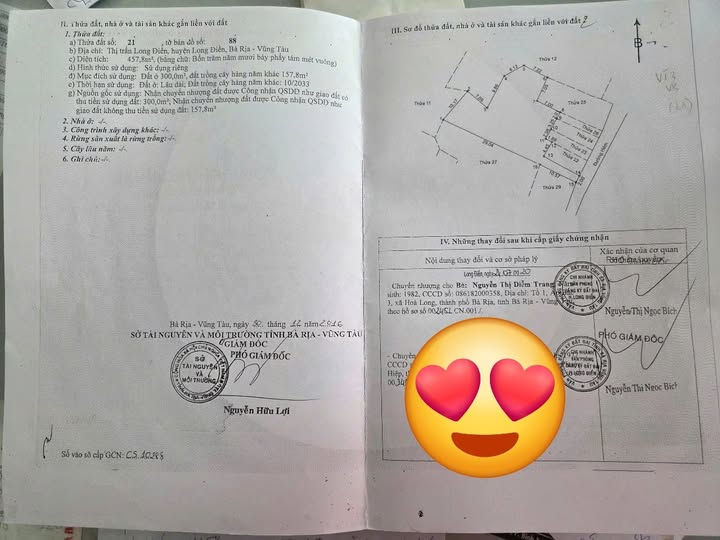 II. Thửa đất, nhà ở và tài sản khác gắn liền với đất
1. Thửa đất:
a) Thửa đất số: 21, tờ bản đồ số: 88
b) Địa chỉ: Thị trấn Long Điền, huyện Long Điền, Bà Rịa - Vũng Tàu
c) Diện tích: 457,8m², (bằng chữ: Bốn trăm năm mươi bảy phẩy tám mét vuông)
d) Hình thức sử dụng: Sử dụng riêng
đ) Mục đích sử dụng: Đất ở 300,0m², đất trồng cây hàng năm khác 157,8m²
e) Thời hạn sử dụng: Đất ở: Lâu dài; Đất trồng cây hàng năm khác: 10/2033
g) Nguồn gốc sử dụng: Nhận chuyển nhượng đất được Công nhận QSDĐ như giao đất có
thu tiền sử dụng đất: 300,0m²; Nhận chuyển nhượng đất được Công nhận QSDĐ như
giao đất không thu tiền sử dụng đất: 157,8m²
2. Nhà ở: -/-
3. Công trình xây dựng khác: -/-
4. Rừng sản xuất là rừng trồng: -/-
5. Cây lâu năm: -/-
6. Ghi chú: -/-
Bà Rịa - Vũng Tàu, ngày tháng 12 năm 2016
SỞ TÀI NGUYÊN VÀ MÔI TRƯỜNG TỈNH BÀ RỊA - VŨNG TÀU
GIÁM ĐỐC
PHÓ GIÁM ĐỐC
SỞ
TÀI NGUYÊN
VÀ
MÔI TRƯỜNG
Nguyễn Hữu Lợi
Số vào sổ cấp GCN: CS 10288
III. Sơ đồ thửa đất, nhà ở và tài sản khác gắn liền với đất
B
Thửa 12
Thửa 11
Thửa 25
Thửa 26
Thửa 24
Thửa 23
Thửa 22
Thửa 27
Thửa 29
Đường Hẻm
7.00
10.57
2.00
IV. Những thay đổi sau khi cấp giấy chứng nhận
Nội dung thay đổi và cơ sở pháp lý
Xác nhận của cơ quan
có thẩm quyền
Long Điền, ngày
Chuyển nhượng cho Bà: Nguyễn Thị Diễm Trang
sinh: 1982, CCCD số: 086182000358, Địa chỉ: Tổ 1,
3, xã Hoà Long, thành phố Bà Rịa, tỉnh Bà Rịa - Vũng
theo hồ sơ số .CN.001/.
CHI NHÁNH
VĂN PHÒNG
ĐĂNG KÝ ĐẤT ĐAI
H.LONG ĐIỀN
Nguyễn Thị Ngọc Bích
PHÓ GIÁM ĐỐC
- Chuyển
CCCD
Hiệp,
CHI NHÁNH
VĂN PHÒNG
ĐĂNG KÝ ĐẤT ĐAI
H.LONG ĐIỀN
Nguyễn Thị Ngọc Bích